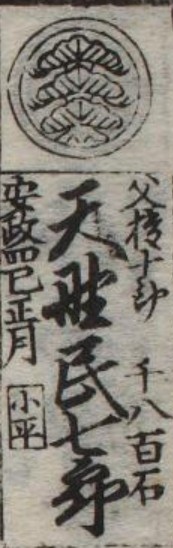 父権十郎 千八百石
天野民七郎
安政四巳正月
小平